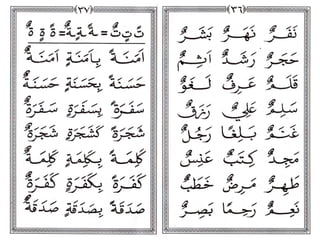 (٣٦)
نَفَرٌ نَهَرٌ بَشَرٌ
حَجَرٌ رَشَدٌ اَثِمٌ
قَلَمٌ عَرِفٌ لَغَوٌ
سَلِمٌ عَلِىٌ رَزَقٌ
غَنَمٌ بَلِغًا رَجُلٌ
مَجِدٌ كِتَبٌ عَنِسٌ
طَهِرٌ مَرِضٌ خَطَبٌ
نَعِمٌ رَحِمًا بَصِرٌ
(٣٧)
ةً ةٍ ةٌ = ـةً ـةٍ ـةٌ = تً تٍ تٌ
اَمَنَةٌ بِاَمَنَةٍ اَمَنَةً
حَسَنَةٌ بِحَسَنَةٍ حَسَنَةً
سَفَرَةٌ بِسَفَرَةٍ سَفَرَةً
شَجَرَةٌ كَشَجَرَةٍ شَجَرَةً
كَلِمَةٌ بِكَلِمَةٍ كَلِمَةً
كَفَرَةٌ بِكَفَرَةٍ كَفَرَةً
صَدَقَةٌ بِصَدَقَةٍ صَدَقَةً